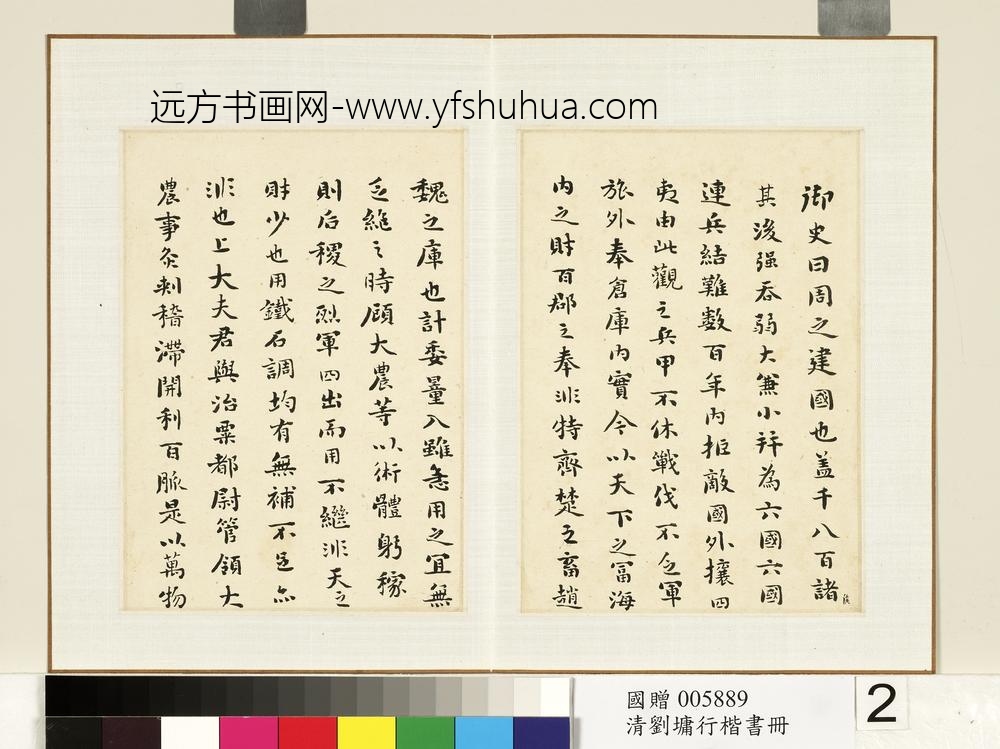 远方书画网-www.yfshuhua.com
御史曰周之建國也盖千八百諸侯
其後强吞弱大兼小并為六國六國
連兵結難数百年內拒敵國外攘四
夷由此觀之兵甲不休戰伐不乏軍
旅外奉倉庫內實今以天下之富海
內之財百郡之奉非特齊楚之畜趙
魏之庫也計委量入雖急用之宜無
乏絶之時顧大農等以術體躬稼
則后稷之烈軍四出而用不繼非天之
財少也用鐵石調均有無補不足亦
非也上大夫君與治粟都尉管領大
農事灸刺稽滯開利百脈是以萬物
國贈 005889
清劉墉行楷書冊
2